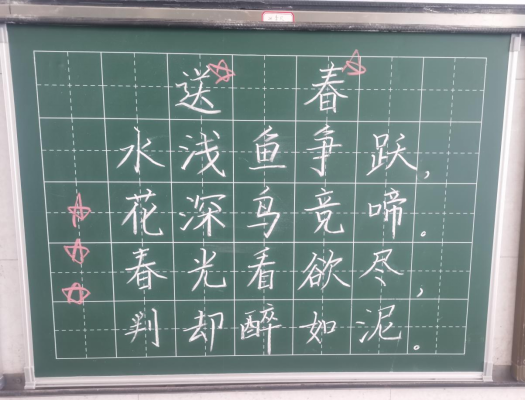 送春
水浅鱼争跃，
花深鸟竞啼。
春光看欲尽，
判却醉如泥。